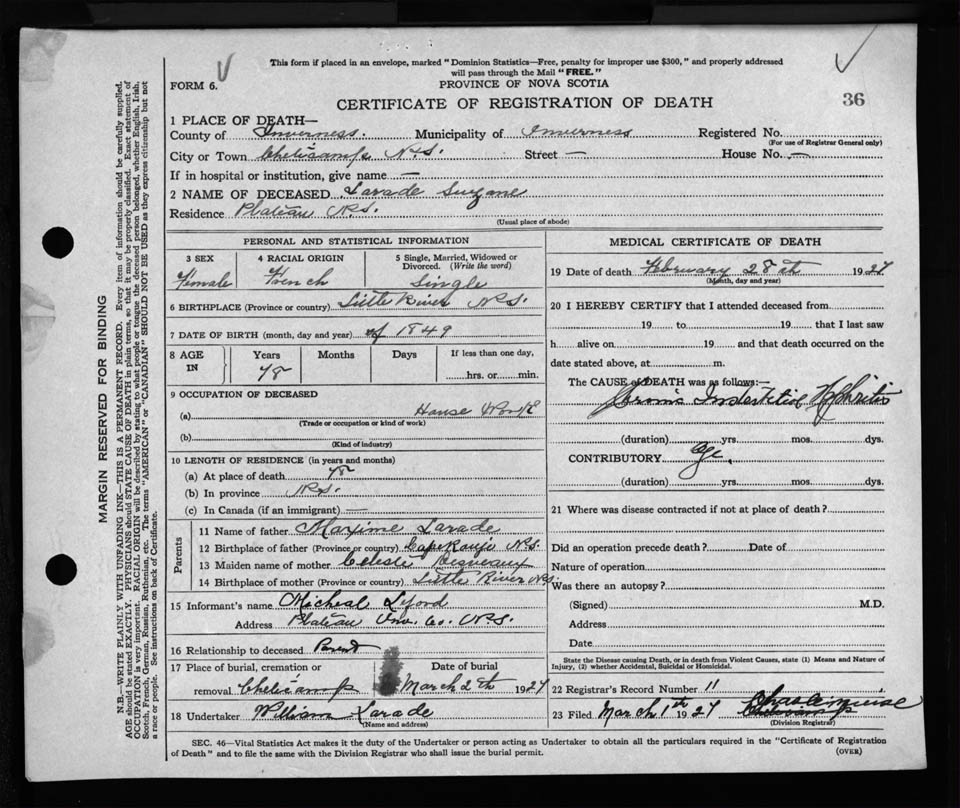 This form if placed in an envelope, marked "Dominion Statistics—Free, penalty for improper use $300," and properly addressed
will pass through the Mail "FREE."
FORM 6.
PROVINCE OF NOVA SCOTIA
36
CERTIFICATE OF REGISTRATION OF DEATH
1 PLACE OF DEATH—
County of Inverness. Municipality of Inverness Registered No.
(For use of Registrar General only)
City or Town Cheticamp N.S. Street — House No. —
If in hospital or institution, give name —
2 NAME OF DECEASED Larade Suzane
Residence Plateau N.S.
(Usual place of abode)
PERSONAL AND STATISTICAL INFORMATION
3 SEX 4 RACIAL ORIGIN 5 Single, Married, Widowed or
Divorced. (Write the word)
Female French Single
6 BIRTHPLACE (Province or country) Little River N.S.
7 DATE OF BIRTH (month, day and year) of 1849
8 AGE IN Years Months Days If less than one day,
78 hrs. or min.
9 OCCUPATION OF DECEASED
(a) House Work
(Trade or occupation or kind of work)
(b)
(Kind of industry)
10 LENGTH OF RESIDENCE (in years and months)
(a) At place of death 78
(b) In province N.S.
(c) In Canada (if an immigrant) —
Parents
11 Name of father Maxime Larade
12 Birthplace of father (Province or country) N.S.
13 Maiden name of mother Celeste
14 Birthplace of mother (Province or country) Little River N.S.
15 Informant's name Micheal
Address Plateau Inv. Co. N.S.
16 Relationship to deceased
17 Place of burial, cremation or Date of burial
removal Cheticamp March 2th 1927
18 Undertaker William Larade
(Name and address)
MEDICAL CERTIFICATE OF DEATH
19 Date of death February 28th 1927
(Month, day and year)
20 I HEREBY CERTIFY that I attended deceased from
19 to 19 that I last saw
h alive on 19 and that death occurred on the
date stated above, at m.
The CAUSE of DEATH was as follows:—
Cronic Nephritis
(duration) yrs. mos. dys.
CONTRIBUTORY
(duration) yrs. mos. dys.
21 Where was disease contracted if not at place of death?
Did an operation precede death? Date of
Nature of operation
Was there an autopsy?
(Signed) M.D.
Address
Date
State the Disease causing Death, or in death from Violent Causes, state (1) Means and Nature of
Injury, (2) whether Accidental, Suicidal or Homicidal.
22 Registrar's Record Number 11
23 Filed March 1th 1927
(Division Registrar)
SEC. 46—Vital Statistics Act makes it the duty of the Undertaker or person acting as Undertaker to obtain all the particulars required in the "Certificate of Registration
of Death" and to file the same with the Division Registrar who shall issue the burial permit. (OVER)
MARGIN RESERVED FOR BINDING
N.B.—WRITE PLAINLY WITH UNFADING INK—THIS IS A PERMANENT RECORD. Every item of information should be carefully supplied.
AGE should be stated EXACTLY. PHYSICIANS should STATE CAUSE OF DEATH in plain terms, so that it may be properly classified. Exact statement of
OCCUPATION is very important. RACIAL ORIGIN will be described by stating to what people or tongue the deceased person belonged, whether English, Irish,
Scotch, French, German, Russian, Ruthenian, etc. The terms "AMERICAN" or "CANADIAN" SHOULD NOT BE USED as they express citizenship but not
a race or people. See instructions on back of Certificate.